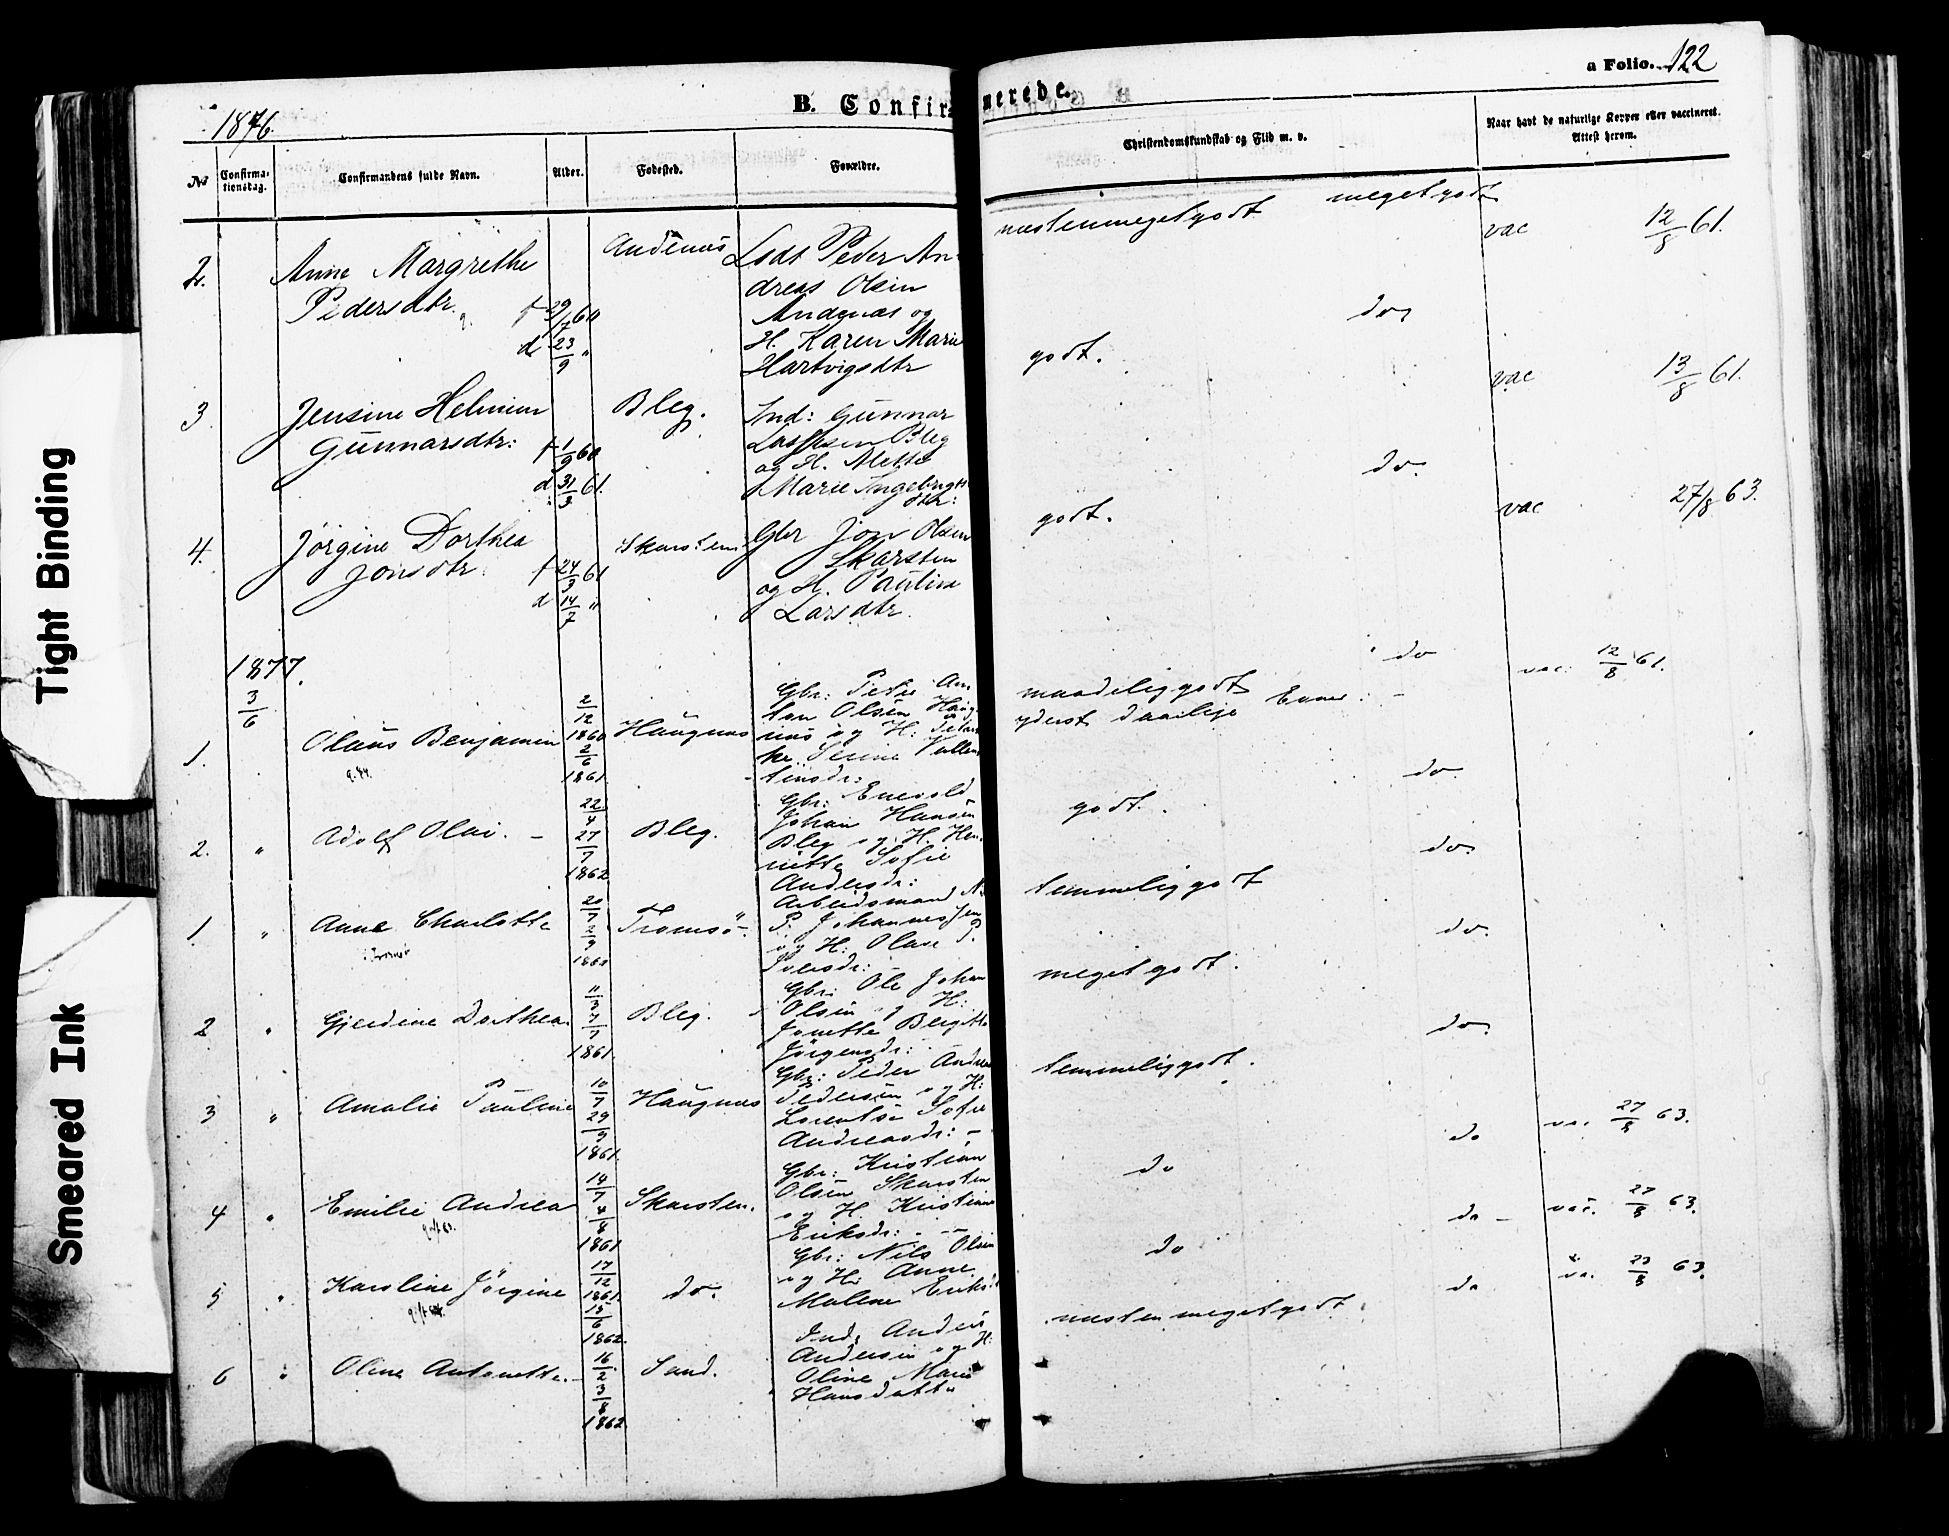 Tight Binding
Smeared Ink
a Folio. 122
1876.
B. Confirmerede.
No
Confirmationsdag.
Confirmandens fulde Navn.
Alder.
Fødested.
Forældre.
Christendomskundskab og Flid m. v.
Naar havt de naturlige Kopper eller vaccineret.
Attest herom.
2.
Anne Margrethe
Pedersdtr.
f 29/7 60
d 23/9 "
Andenæs
Peder An-
dreas Olsen
Andenæs og
H. Karen Marie
Hartvigsdtr
næsten meget godt
meget godt
vac 12/8 61.
3.
Jensine
Gunnarsdtr:
f 1/9 60
d 31/3 61.
Bleg.
Ind: Gunnar
Bleg
og H. Mette
Marie Ingebrigts
dtr:
godt.
do
vac 13/8 61.
4.
Jørgine Dorthea
Jonsdtr.
f 24/3 61
d 14/7 "
Skarsten
Gbr Jon Olsen
Skarsten
og H. Paulina
Larsdtr.
godt.
do.
vac 27/8 63.
1877.
3/6
1.
Olaus Benjamin
2/12
1860
2/6
1861.
Haugnes
Gbr: Peter An
ton Olsen Haug
næs og H:
Serine
tinsdr:
maadelig godt
yderst daarlige Evner.
do
vac: 12/8 61.
2.
"
Adolf Olai. –
22/4
27/7
1862
Bleg.
Gbr: Enevold
Johan Hansen
Bleg og H. Hen
riette Sofie
Andersdr:
godt.
do.
1.
"
Anne Charlotte
20/7
2/9
Tromsø.
Arbeidsmand N.
P. Johannessen
og H: Olave P.
temmelig godt
do.
2
"
Gjerdine Dorthea.
11/3
7/7
1861.
Bleg.
Gbr: Ole Johan
Olsen og H:
Jonette Birgitte
Jørgensdr:
meget godt.
do.
3
"
Amalie Pauline
10/7
29/9
1861.
Haugnes
Gbr: Peder Andreas
Pedersen og H:
Lorentse Sofie
Andreasdr: –
temmelig godt.
do.
4
"
Emilie Andrea
14/7
4/8
1861
Skarsten.
Gbr: Kristian
Olsen Skarsten
og H. Kristiane
Eriksdr: –
do
do
vac. 27/8 63.
5
"
Karoline Jørgine
17/12
1861.
15/6
1862.
do.
Gbr: Nils Olsen
og H: Anne
Malene Eriksd
do
do –
vac. 27/8 63.
6
"
Oline Antonette. –
16/2
3/8
1862.
Sand.
Ind: Anders
Andersen og H:
Oline Marie
Hansdatter
næsten meget godt.
do
va. 23/8 63.